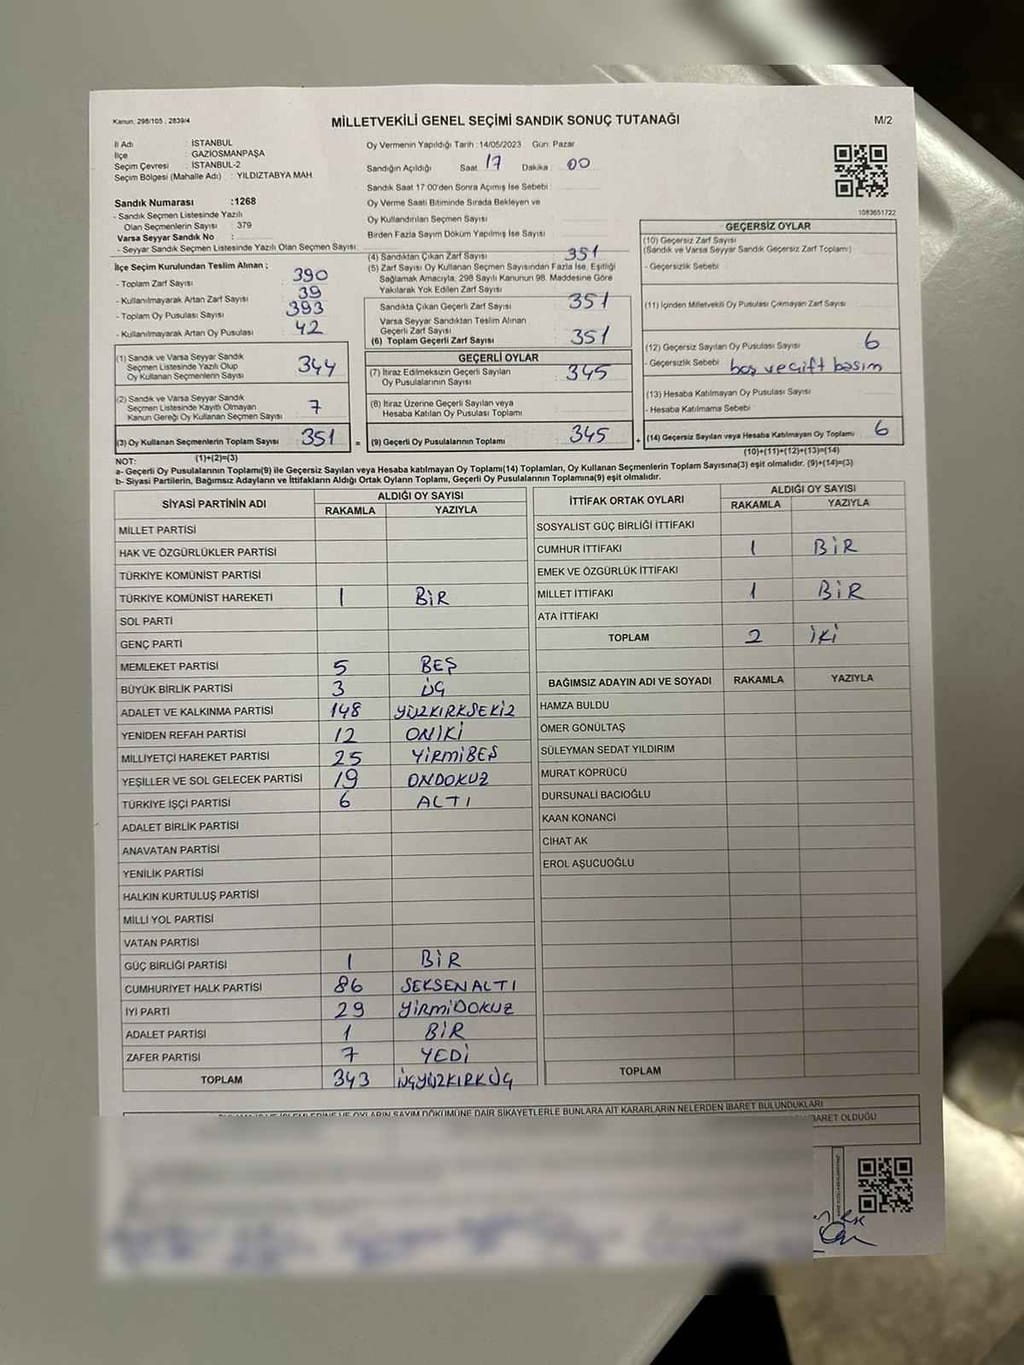 Kanun: 298/105 ; 2839/4
MİLLETVEKİLİ GENEL SEÇİMİ SANDIK SONUÇ TUTANAĞI
M/2
İl Adı : İSTANBUL
İlçe : GAZİOSMANPAŞA
Seçim Çevresi : İSTANBUL-2
Seçim Bölgesi (Mahalle Adı) : YILDIZTABYA MAH
Sandık Numarası :1268
- Sandık Seçmen Listesinde Yazılı
Olan Seçmenlerin Sayısı : 379
Varsa Seyyar Sandık No :
- Seyyar Sandık Seçmen Listesinde Yazılı Olan Seçmen Sayısı:
Oy Vermenin Yapıldığı Tarih : 14/05/2023 Gün: Pazar
Sandığın Açıldığı Saat 17 Dakika : 00
Sandık Saat 17 00'den Sonra Açımış İse Sebebi :
Oy Verme Saati Bitiminde Sırada Bekleyen ve
Oy Kullandırılan Seçmen Sayısı
Birden Fazla Sayım Döküm Yapılmış İse Sayısı
1083651722
İlçe Seçim Kurulundan Teslim Alınan ;
- Toplam Zarf Sayısı : 390
- Kullanılmayarak Artan Zarf Sayısı : 39
- Toplam Oy Pusulası Sayısı : 393
- Kullanılmayarak Artan Oy Pusulası : 42
(1) Sandık ve Varsa Seyyar Sandık
Seçmen Listesinde Yazılı Olup
Oy Kullanan Seçmenlerin Sayısı 344
(2) Sandık ve Varsa Seyyar Sandık
Seçmen Listesinde Kayıtlı Olmayan
Kanun Gereği Oy Kullanan Seçmen Sayısı 7
(3) Oy Kullanan Seçmenlerin Toplam Sayısı 351
(1)+(2)=(3)
(4) Sandıktan Çıkan Zarf Sayısı 351
(5) Zarf Sayısı Oy Kullanan Seçmen Sayısından Fazla İse, Eşitliği
Sağlamak Amacıyla, 298 Sayılı Kanunun 98. Maddesine Göre
Yakılarak Yok Edilen Zarf Sayısı
Sandıkta Çıkan Geçerli Zarf Sayısı 351
Varsa Seyyar Sandıktan Teslim Alınan
Geçerli Zarf Sayısı
(6) Toplam Geçerli Zarf Sayısı 351
GEÇERLİ OYLAR
(7) İtiraz Edilmeksizin Geçerli Sayılan
Oy Pusulalarının Sayısı 345
(8) İtiraz Üzerine Geçerli Sayılan veya
Hesaba Katılan Oy Pusulası Toplamı
= (9) Geçerli Oy Pusulalarının Toplamı 345
GEÇERSİZ OYLAR
(10) Geçersiz Zarf Sayısı
(Sandık ve Varsa Seyyar Sandık Geçersiz Zarf Toplamı)
- Geçersizlik Sebebi :
(11) İçinden Milletvekili Oy Pusulası Çıkmayan Zarf Sayısı
(12) Geçersiz Sayılan Oy Pusulası Sayısı 6
- Geçersizlik Sebebi : boş ve çift basım
(13) Hesaba Katılmayan Oy Pusulası Sayısı
- Hesaba Katılmama Sebebi :
+ (14) Geçersiz Sayılan veya Hesaba Katılmayan Oy Toplamı 6
(10)+(11)+(12)+(13)=(14)
NOT:
a- Geçerli Oy Pusulalarının Toplamı(9) ile Geçersiz Sayılan veya Hesaba katılmayan Oy Toplamı(14) Toplamları, Oy Kullanan Seçmenlerin Toplam Sayısına(3) eşit olmalıdır. (9)+(14)=(3)
b- Siyasi Partilerin, Bağımsız Adayların ve İttifakların Aldığı Ortak Oyların Toplamı, Geçerli Oy Pusulalarının Toplamına(9) eşit olmalıdır.
SİYASİ PARTİNİN ADI ALDIĞI OY SAYISI
RAKAMLA YAZIYLA
MİLLET PARTİSİ
HAK VE ÖZGÜRLÜKLER PARTİSİ
TÜRKİYE KOMÜNİST PARTİSİ
TÜRKİYE KOMÜNİST HAREKETİ 1 BİR
SOL PARTİ
GENÇ PARTİ
MEMLEKET PARTİSİ 5 BEŞ
BÜYÜK BİRLİK PARTİSİ 3 ÜÇ
ADALET VE KALKINMA PARTİSİ 148 YÜZKIRKSEKİZ
YENİDEN REFAH PARTİSİ 12 ONİKİ
MİLLİYETÇİ HAREKET PARTİSİ 25 YİRMİBEŞ
YEŞİLLER VE SOL GELECEK PARTİSİ 19 ONDOKUZ
TÜRKİYE İŞÇİ PARTİSİ 6 ALTI
ADALET BİRLİK PARTİSİ
ANAVATAN PARTİSİ
YENİLİK PARTİSİ
HALKIN KURTULUŞ PARTİSİ
MİLLİ YOL PARTİSİ
VATAN PARTİSİ
GÜÇ BİRLİĞİ PARTİSİ 1 BİR
CUMHURİYET HALK PARTİSİ 86 SEKSENALTI
İYİ PARTİ 29 YİRMİDOKUZ
ADALET PARTİSİ 1 BİR
ZAFER PARTİSİ 7 YEDİ
TOPLAM 343 ÜÇYÜZKIRKÜÇ
İTTİFAK ORTAK OYLARI ALDIĞI OY SAYISI
RAKAMLA YAZIYLA
SOSYALIST GÜÇ BİRLİĞİ İTTİFAKI
CUMHUR İTTİFAKI 1 BİR
EMEK VE ÖZGÜRLÜK İTTİFAKI
MİLLET İTTİFAKI 1 BİR
ATA İTTİFAKI
TOPLAM 2 İKİ
BAĞIMSIZ ADAYIN ADI VE SOYADI RAKAMLA YAZIYLA
HAMZA BULDU
ÖMER GÖNÜLTAŞ
SÜLEYMAN SEDAT YILDIRIM
MURAT KÖPRÜCÜ
DURSUNALİ BACIOĞLU
KAAN KONANCİ
CİHAT AK
EROL AŞUCUOĞLU
TOPLAM
OYLARIN SAYIM DÖKÜMÜNE DAİR ŞİKAYETLERLE BUNLARA AİT KARARLARIN NELERDEN İBARET BULUNDUKLARI
İBARET OLDUĞU